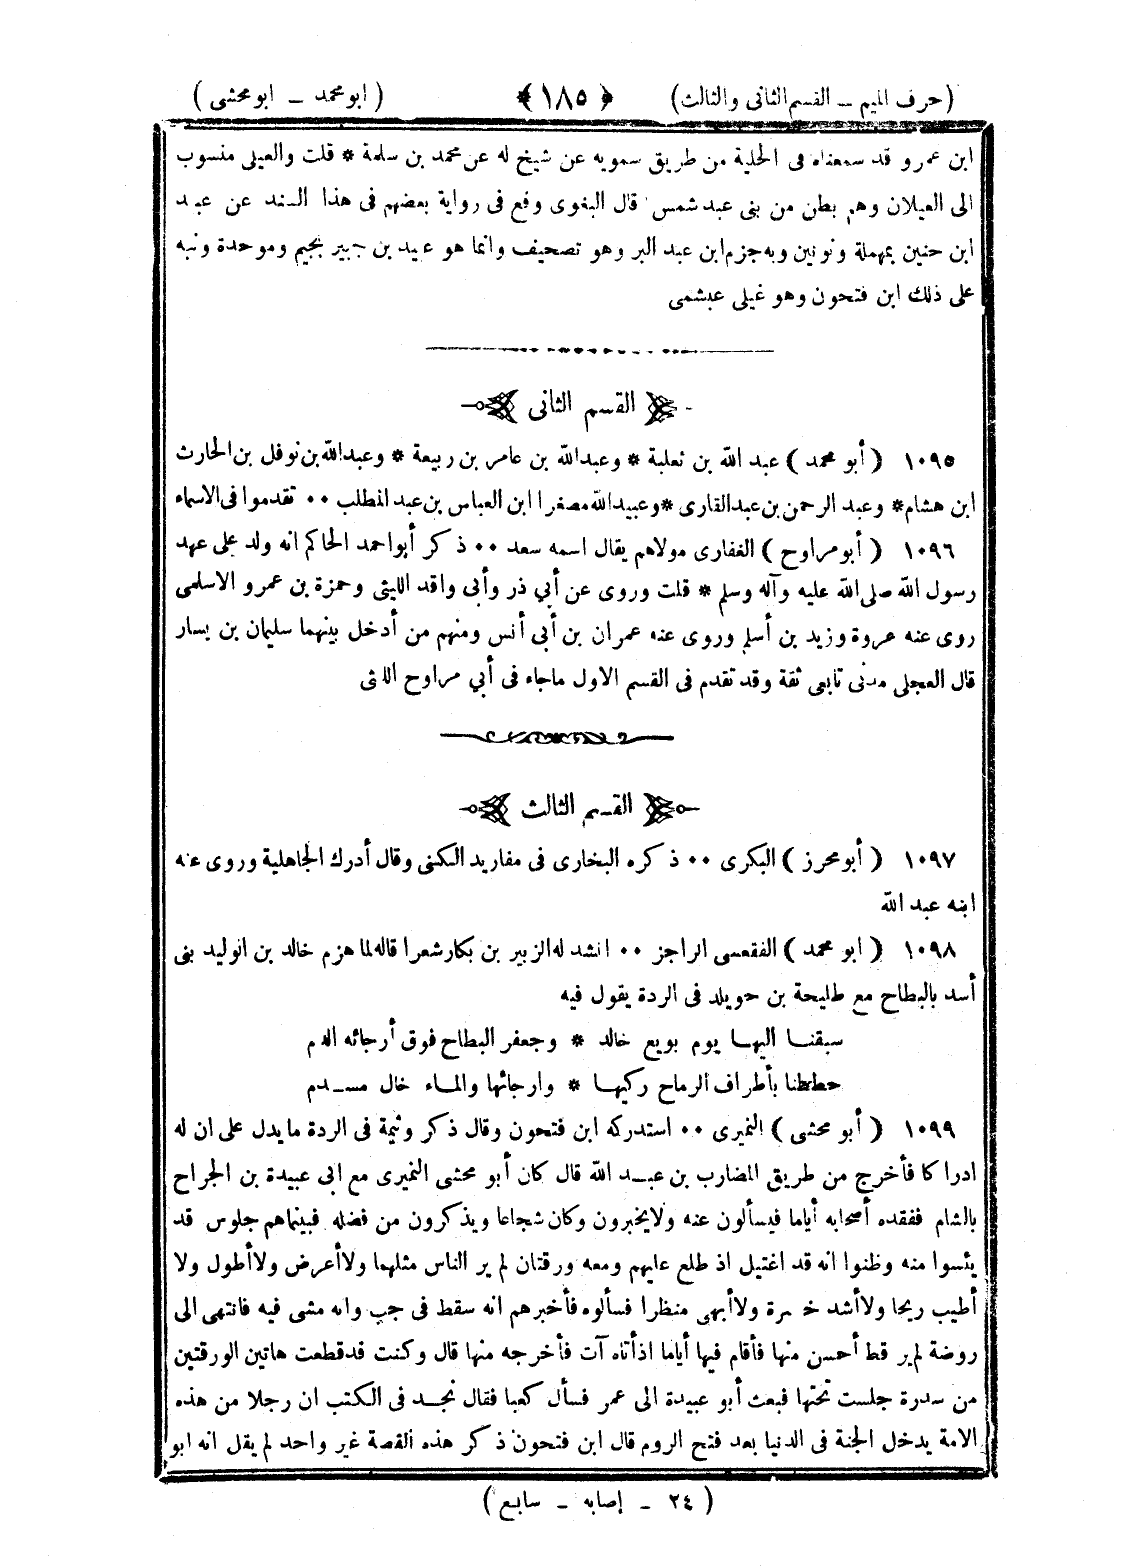 (حرف الميم ــ القسم الثانى والثالث) ﴿ ١٨٥ ﴾ ( ابو محمد ــ ابو محشى )
ابن عمرو قد سمعناه فى الحلية من طريق سمويه عن شيخ له عن محمد بن سلمة * قلت والعيلى منسوب
الى العيلان وهم بطن من بنى عبد شمس قال البغوى وقع فى رواية بعضهم فى هذا السند عن عبد
ابن حنين بمهملة ونونين وبه جزم ابن عبد البر وهو تصحيف وانما هو عبيد بن جبير بجيم وموحدة ونبه
على ذلك ابن فتحون وهو غيلى عبشمى
القسم الثانى
١٠٩٥ ( أبو محمد ) عبد الله بن ثعلبة * وعبدالله بن عامر بن ربيعة * وعبدالله بن نوفل بن الحارث
ابن هشام * وعبد الرحمن بن عبدالقارى * وعبيدالله مصغرا ابن العباس بن عبد المطلب ٠٠ تقدموا فى الاسماء
١٠٩٦ ( أبو مراوح ) الغفارى مولاهم يقال اسمه سعد ٠٠ ذكر أبو احمد الحاكم انه ولد على عهد
رسول الله صلى الله عليه وآله وسلم * قلت وروى عن أبي ذر وأبى واقد الليثى وحمزة بن عمرو الاسلمى
روى عنه عروة وزيد بن أسلم وروى عنه عمران بن أبى أنس ومنهم من أدخل بينهما سليمان بن يسار
قال العجلى مدنى تابعى ثقة وقد تقدم فى القسم الاول ماجاء فى أبي مراوح الليثى
القسم الثالث
١٠٩٧ ( أبو محرز ) البكرى ٠٠ ذكره البخارى فى مفاريد الكنى وقال أدرك الجاهلية وروى عنه
ابنه عبد الله
١٠٩٨ ( ابو محمد ) الفقعسى الراجز ٠٠ انشد له الزبير بن بكار شعرا قاله لما هزم خالد بن الوليد بنى
أسد بالبطاح مع طليحة بن حويلد فى الردة يقول فيه
سبقنــا اليهــا يوم بويع خالد * وجعفر البطاح فوق أرجائه الدم
حططنا بأطراف الرماح ركيهــا * وارجائها والمــاء خال مســدم
١٠٩٩ ( أبو محشى ) النميرى ٠٠ استدركه ابن فتحون وقال ذكر وثيمة فى الردة ما يدل على ان له
ادراكا فأخرج من طريق المضارب بن عبــد الله قال كان أبو محشى النميرى مع ابى عبيدة بن الجراح
بالشام ففقده أصحابه أياما فيسألون عنه ولايخبرون وكان شجاعا ويذكرون من فضله فبينماهم جلوس قد
يئسوا منه وظنوا انه قد اغتيل اذ طلع عليهم ومعه ورقتان لم ير الناس مثلهما ولاأعرض ولاأطول ولا
أطيب ريحا ولاأشد خضرة ولاأبهى منظرا فسألوه فأخبرهم انه سقط فى جب وانه مشى فيه فانتهى الى
روضة لم ير قط أحسن منها فأقام فيها أياما اذأتاه آت فأخرجه منها قال وكنت قدقطعت هاتين الورقتين
من سدرة جلست تحتها فبعث أبو عبيدة الى عمر فسأل كعبا فقال نجــد فى الكتب ان رجلا من هذه
الامة يدخل الجنة فى الدنيا بعد فتح الروم قال ابن فتحون ذكر هذه القصة غير واحد لم يقل انه ابو
( ٢٤ ــ إصابه ــ سابع )